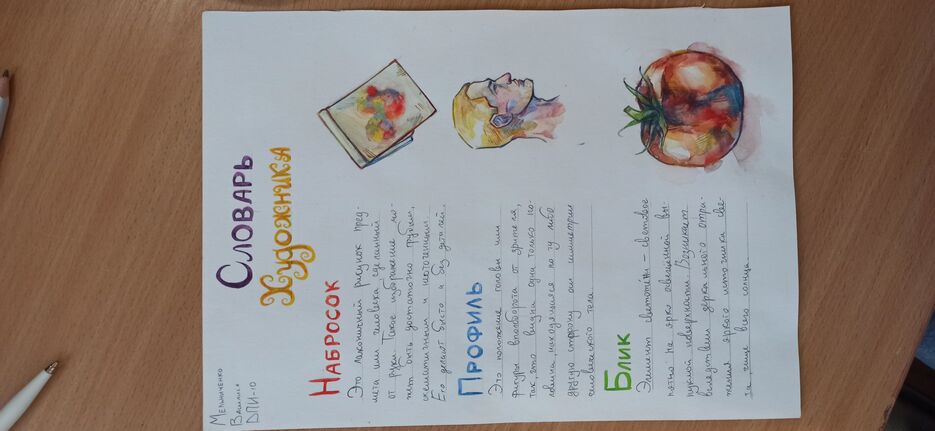 Мельниченко
Василиса
ДПИ-10
Словарь
Художника
Набросок
Это лаконичный рисунок пред-
мета или человека сделанный
от руки. Такое изображение мо-
жет быть достаточно грубым,
схематичным и неоточенным.
Его делают быстро и без деталей.
Профиль
Это положение головы или
фигуры вполоборота от зрителя,
так, что видна одна только по-
ловина, находящаяся по ту либо
другую сторону оси симметрии
человеческого тела
Блик
Элемент светотени – световое
пятно на ярко освещённой вы-
пуклой поверхности. Возникает
вследствии зеркального отра-
жения яркого источника све-
та чаще всего солнца